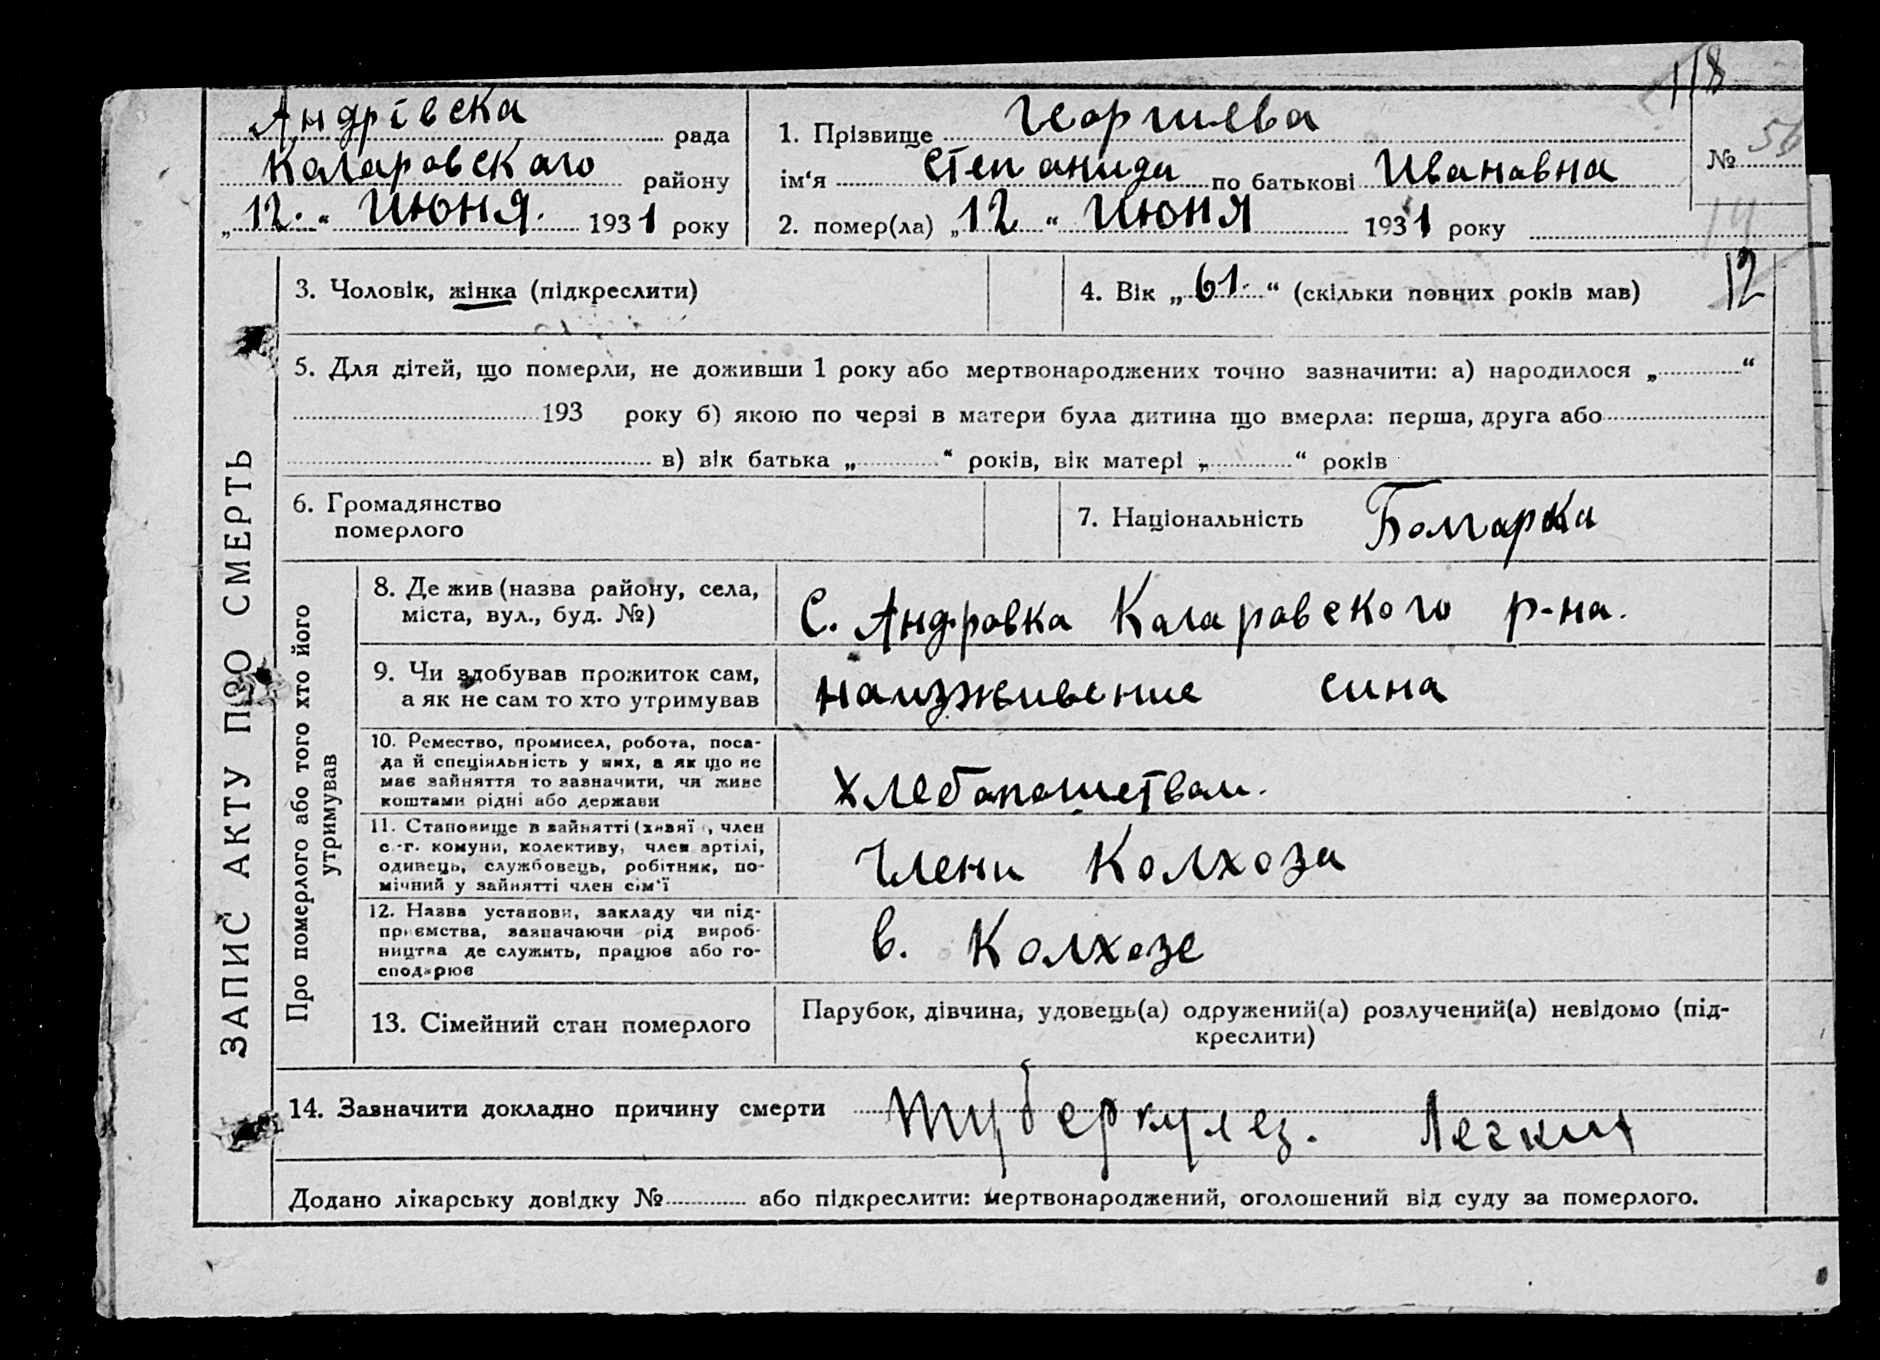 118
Андрівска рада
Коларовскаго району
„12.“ Июня. 1931 року
1. Прізвище Георгиева
ім‘я Степанида по батькові Ивановна
2. помер(ла) „12“ Июня 1931 року
№ 56
14
12
ЗАПИС АКТУ ПРО СМЕРТЬ
3. Чоловік, жінка (підкреслити)
4. Вік „61.“ (скільки повних років мав)
5. Для дітей, що померли, не доживши 1 року або мертвонароджених точно зазначити: а) народилося „ “
193 року б) якою по черзі в матери була дитина що вмерла: перша, друга або
в) вік батька „ “ років, вік матері „ “ років
6. Громадянство
померлого
7. Національність Болгарка
Про померлого або того хто його
утримував
8. Де жив (назва району, села,
міста, вул., буд. №)
С. Андровка Коларовского р-на.
9. Чи здобував прожиток сам,
а як не сам то хто утримував
сина
10. Ремество, промисел, робота, поса-
да й спеціяльність у них, а як що не
має зайняття то зазначити, чи живе
коштами рідні або держави
хлебопашеством.
11. Становище в зайнятті (хазяї , член
с.-г. комуни, колективу, член артілі,
одинець, службовець, робітник, по-
мічний у зайнятті член сім‘ї
Члени Колхоза
12. Назва установи, закладу чи під-
приємства, зазначаючи рід вироб-
ництва де служить, працює або го-
сподарює
в. Колхозе
13. Сімейний стан померлого
Парубок, дівчина, удовець(а) одружений(а) розлучений(а) невідомо (під-
креслити)
14. Зазначити докладно причину смерти Туберкулез. Легких
Додано лікарську довідку № або підкреслити: мертвонароджений, оголошений від суду за померлого.